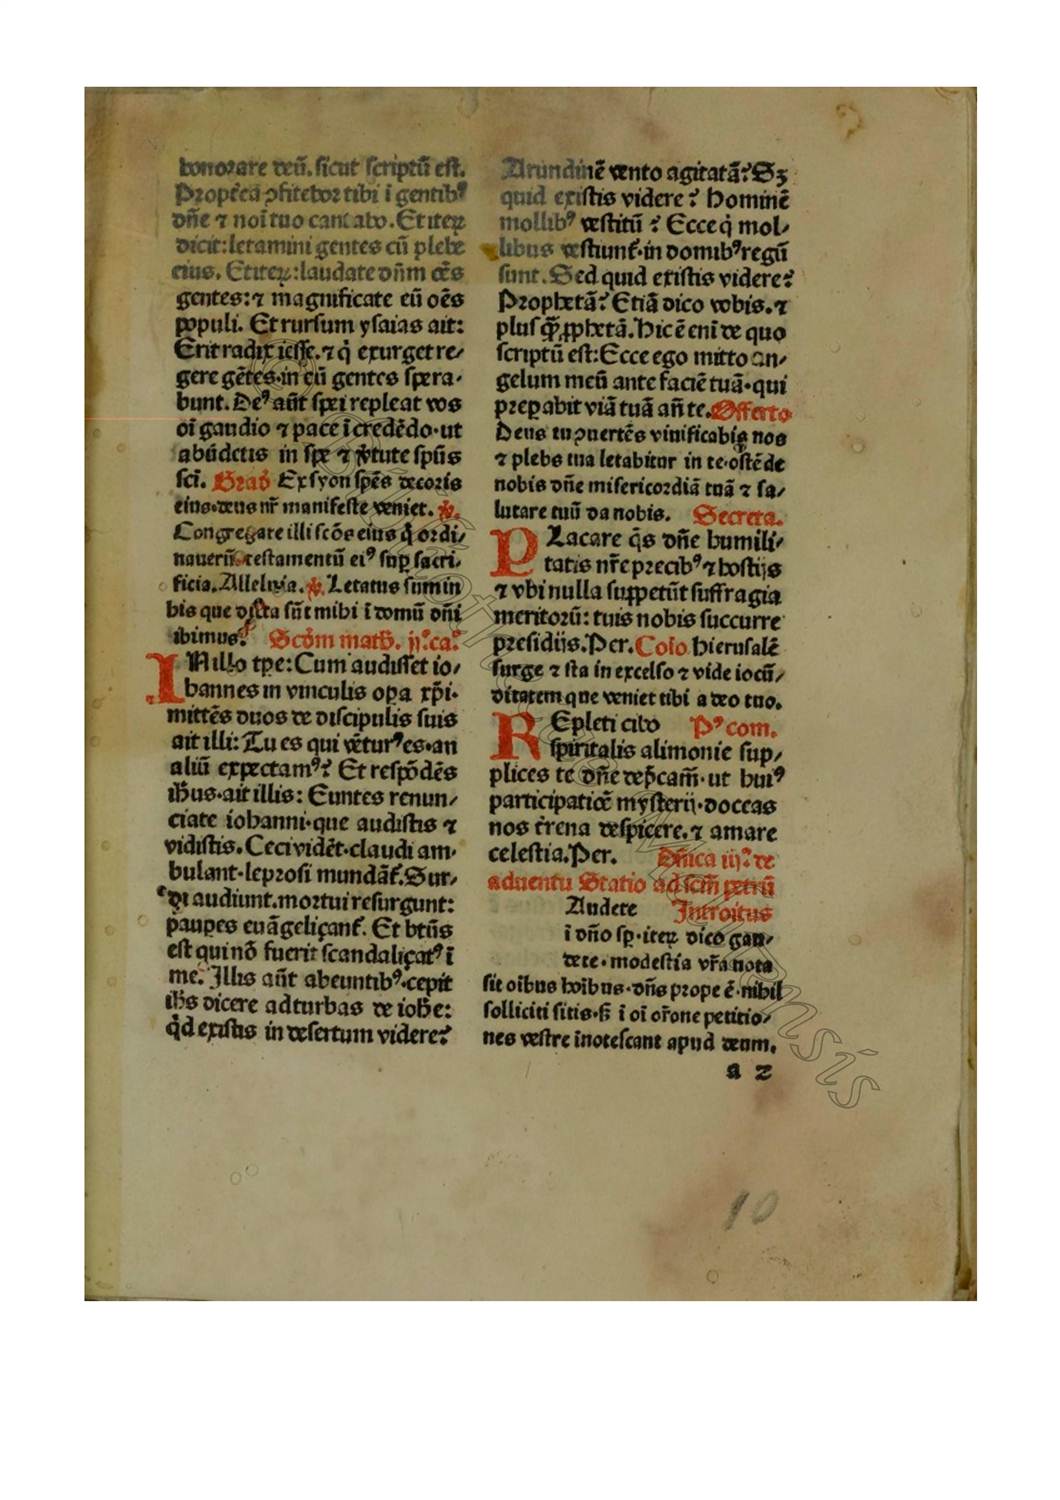 honorare deū. sicut scriptū est.
Propt̄ea ꝯfitebor tibi ī gentibꝰ
dn̄e ⁊ noi tuo cantabo. Et iteꝝ
dicit: letamini gentes cū plebe
eius. Et iteꝝ: laudate dn̄m oēs
gentes: ⁊ magnificate eū oēs
populi. Et rursum ysaias ait:
Erit radix iesse. ⁊ q̇ exurget re/
gere gētes·in eū gentes spera/
bunt. Deꝰ aūt spei repleat vos
oī gaudio ⁊ pace ī credēdo·ut
abūdetis in spe ⁊ v̄tute sp̄us
sc̄i. Grad̄ Ex syon spēs decoris
eius·deus nr̄ manifeste veniet. ℣.
Congregate illi scōs eius q̇ ordi/
nauerūt testamentū eiꝰ suꝑ sacri/
ficia. Alleluya. ℣. Letatus sum in
his que dicta sūt mihi ī domū dn̄i
ibimus. Scd̄m math̄. ij.ᵒ ca.ᵒ
IN illo tꝑe: Cum audisset io/
hannes in vinculis oꝑa xp̄i·
mittēs duos de discipulis suis
ait illi: Tu es qui vēturꝰ es·an
aliū expectamꝰ? Et respōdēs
ih̄us·ait illis: Euntes renun/
ciate iohanni·que audistis ⁊
vidistis. Ceci vidēt·claudi am/
bulant·leprosi mundāt̄. Sur/
di audiunt.mortui resurgunt:
pauꝑes euāgeliçant̄. Et bt̄us
est qui nō fuerit scandaliçatꝰ ī
me. Illis aūt abeuntibꝰ·cepit
ih̄s dicere ad turbas de ioh̄e:
qd̄ existis in desertum videre?
Arundinē vento agitatā? Sꝫ
quid existis videre? Hominē
mollibꝰ vestitū? Ecce q̇ mol/
libus vestiunt̄·in domibꝰ regū
sunt. Sed quid existis videre?
Prophetā? Etiā dico vobis. ⁊
plus qꝫ ꝓphetā. Hic ē eni de quo
scriptū est: Ecce ego mitto an/
gelum meū ante faciē tuā·qui
preꝑabit viā tuā an̄ te. Offerto
Deus tu ꝯuertēs viuificabis nos
⁊ plebs tua letabitur in te·ostēde
nobis dn̄e misericordiā tuā ⁊ sa/
lutare tuū da nobis. Secreta.
PLacare qs̄ dn̄e humili/
tatis nr̄e precibꝰ ⁊ hostijs
⁊ vbi nulla suppetūt suffragia
meritorū: tuis nobis succurre
presidijs. Per. Coīo Hierusalē
surge ⁊ sta in excelso ⁊ vide iocū/
ditatem que veniet tibi a deo tuo.
REpleti cibo Pꝰ com.
spiritalis alimonie sup/
plices te dn̄e dep̄cam̄·ut huiꝰ
participatiōe mysterij·doceas
nos t̄rena despicere. ⁊ amare
celestia. Per. Dn̄ica iij.ᵃ de
aduentu Statio ad scm̄ petrū
Audete Introitus
ī dn̄o sꝑ·iteꝝ dico gau/
dete·modestia vr̄a nota
sit oībus hoībus·dn̄s prope ē·nihil
solliciti sitis·sꝫ ī oī or̄one petitio/
nes vestre inotescant apud deum.
a 2
10